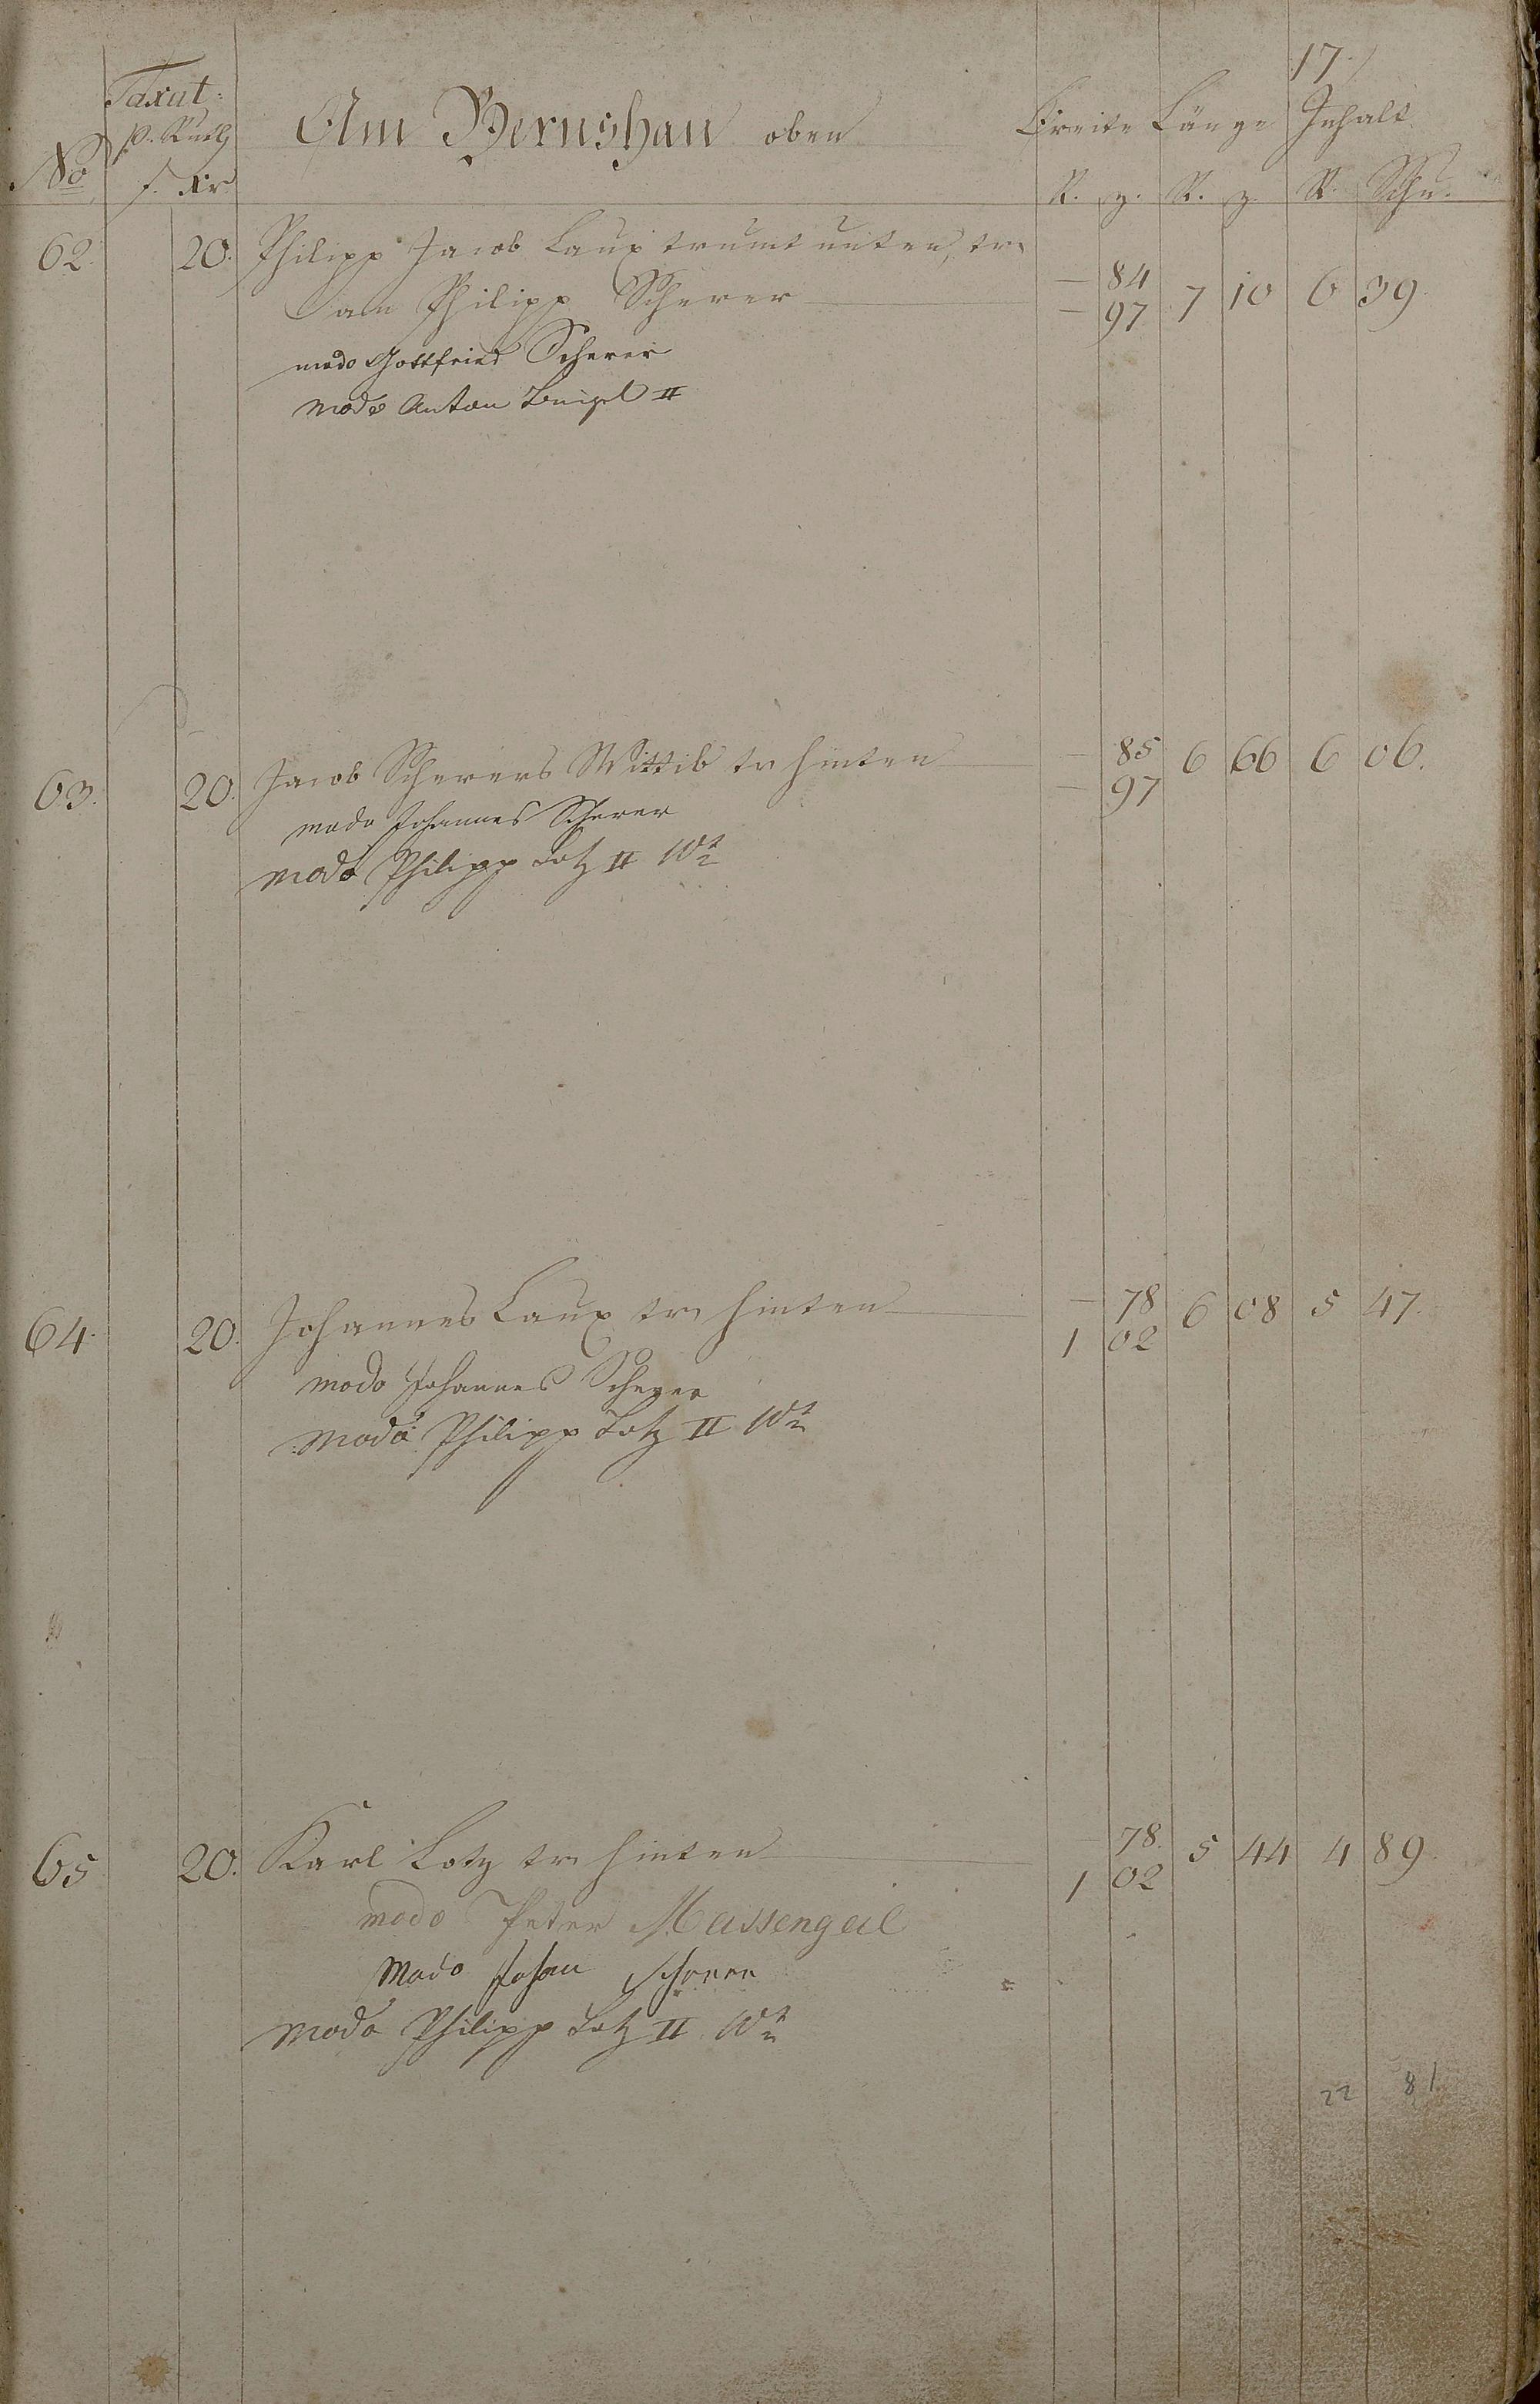 17.
Taxat: Am Bernshan oben Breite Länge Inhalt
p. Ruth
No f. Xr R. z. R. z. R. Schu.
62. 20. Philipp Jacob Laux trumt unten, tr. — 84
am Philipp Scherer — 97 7 10 6 39.
modo Gottfried Scherer
modo Anton II
63. 20. Jacob Scherers Wittib tr hinten — 85 6 66 6 06.
— 97
modo Johannes Scherer
modo Philipp Lotz II Wt
64. 20. Johannes Laux tr hinten — 78 6 08 5 47.
1 02
modo Johannes Scherer
modo Philipp Lotz II Wt
65 20. Karl Lotz tr hinten — 78. 5 44 4 89.
1 02
modo Peter Massengeil
modo Johan Scherer
modo Philipp Lotz II Wt
22 81